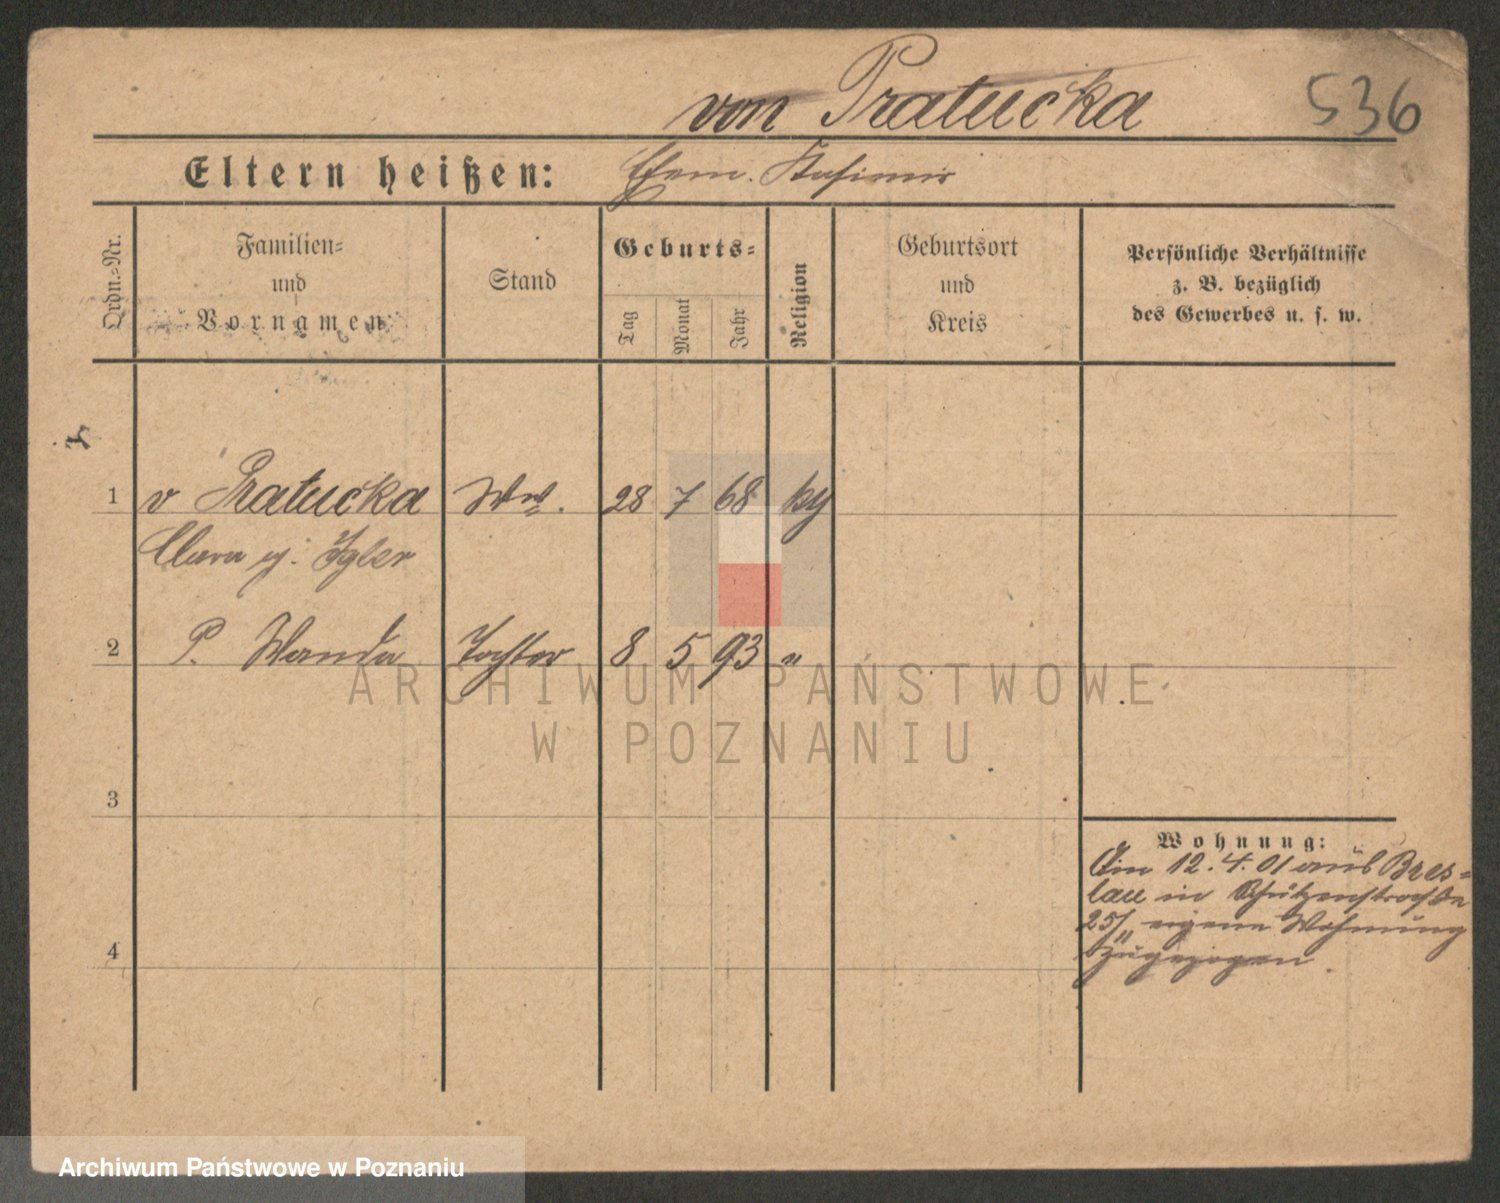 von Pratucka
536
Eltern heißen: Ehem. Kasimir
Ordn.-Nr.
Familien-
und
Vornamen
Stand
Geburts-
Tag
Monat
Jahr
Religion
Geburtsort
und
Kreis
Persönliche Verhältnisse
z. B. bezüglich
des Gewerbes u. s. w.
1 v Pratucka Ww. 28 7 68
Clara gj. Igler
2 P. Wanda Tochter 8 5 93 "
ARCHIWUM PAŃSTWOWE
W POZNANIU
3
Wohnung:
Am 12. 4. 01 aus Bres-
lau in Schützenstraße
25/II eigene Wohnung
zugezogen.
4
Archiwum Państwowe w Poznaniu